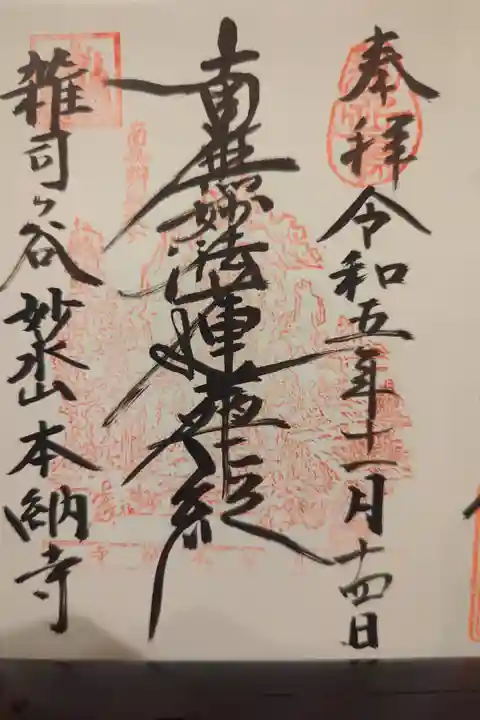 奉拝 令和五年十一月十四日
南無妙法蓮華経
雑司ヶ谷 妙永山 本納寺